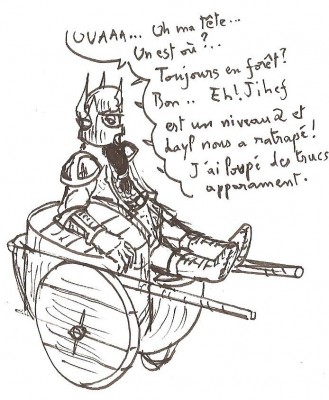 OUUAAA... Oh ma tête...
Un est où?..
Toujours en forêt?
Bon.. Eh! Jihef
est un niveau 2 et
dayl nous a ratrapé!
J'ai loupé des trucs
apparament.